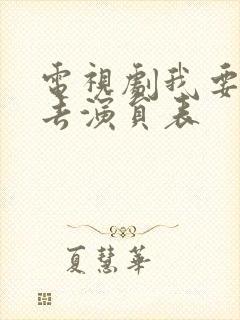 電視劇我要
去演員表
夏慧華